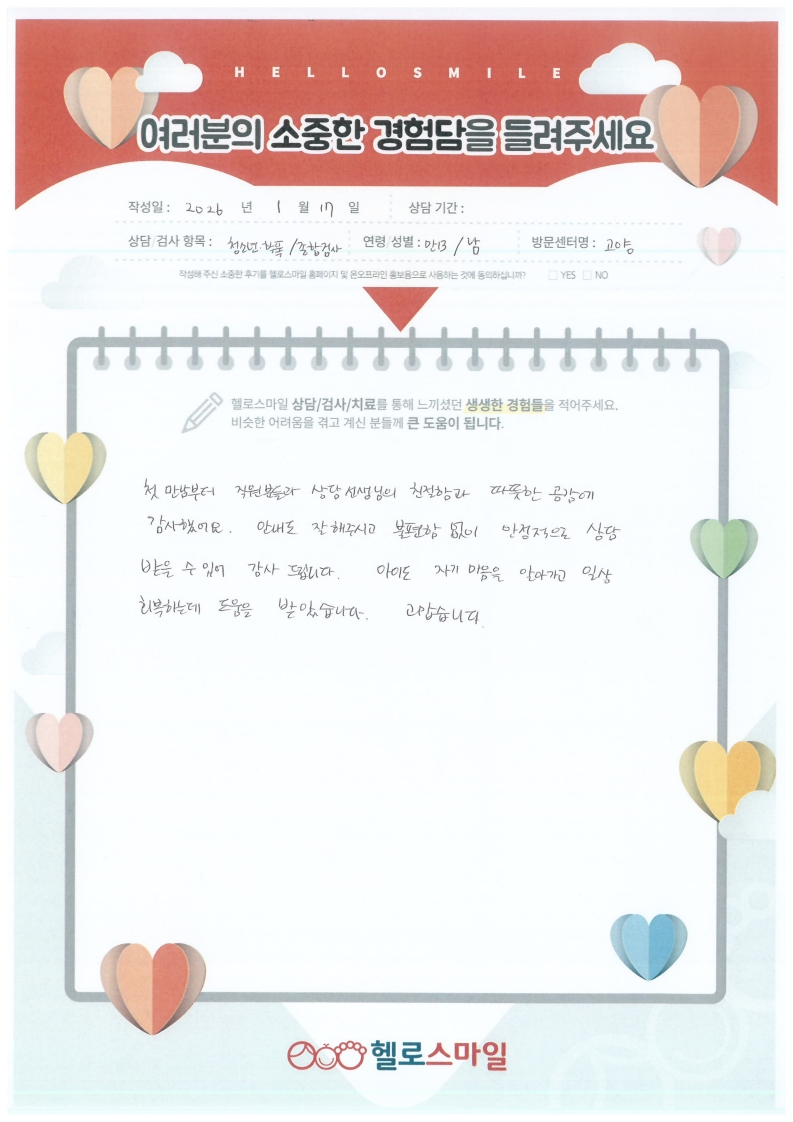 HELLOSMILE
여러분의 소중한 경험담을 들려주세요
작성일 : 2026 년 1 월 17 일 상담 기간 :
상담/검사 항목 : 청소년. /종합검사 연령/성별 : 만13 / 남 방문센터명 : 고양
작성해 주신 소중한 후기를 헬로스마일 홈페이지 및 온오프라인 홍보용으로 사용하는 것에 동의하십니까? □ YES □ NO
헬로스마일 상담/검사/치료를 통해 느끼셨던 생생한 경험들을 적어주세요.
비슷한 어려움을 겪고 계신 분들께 큰 도움이 됩니다.
첫 만남부터 직원분들과 상담선생님의 친절함과 따뜻한 공감에
감사했어요. 안내도 잘 해주시고 불편함 없이 안정적으로 상담
받을 수 있어 감사 드립니다. 아이도 자기 마음을 알아가고 일상
회복하는데 도움을 받았습니다. 고맙습니다.
헬로스마일